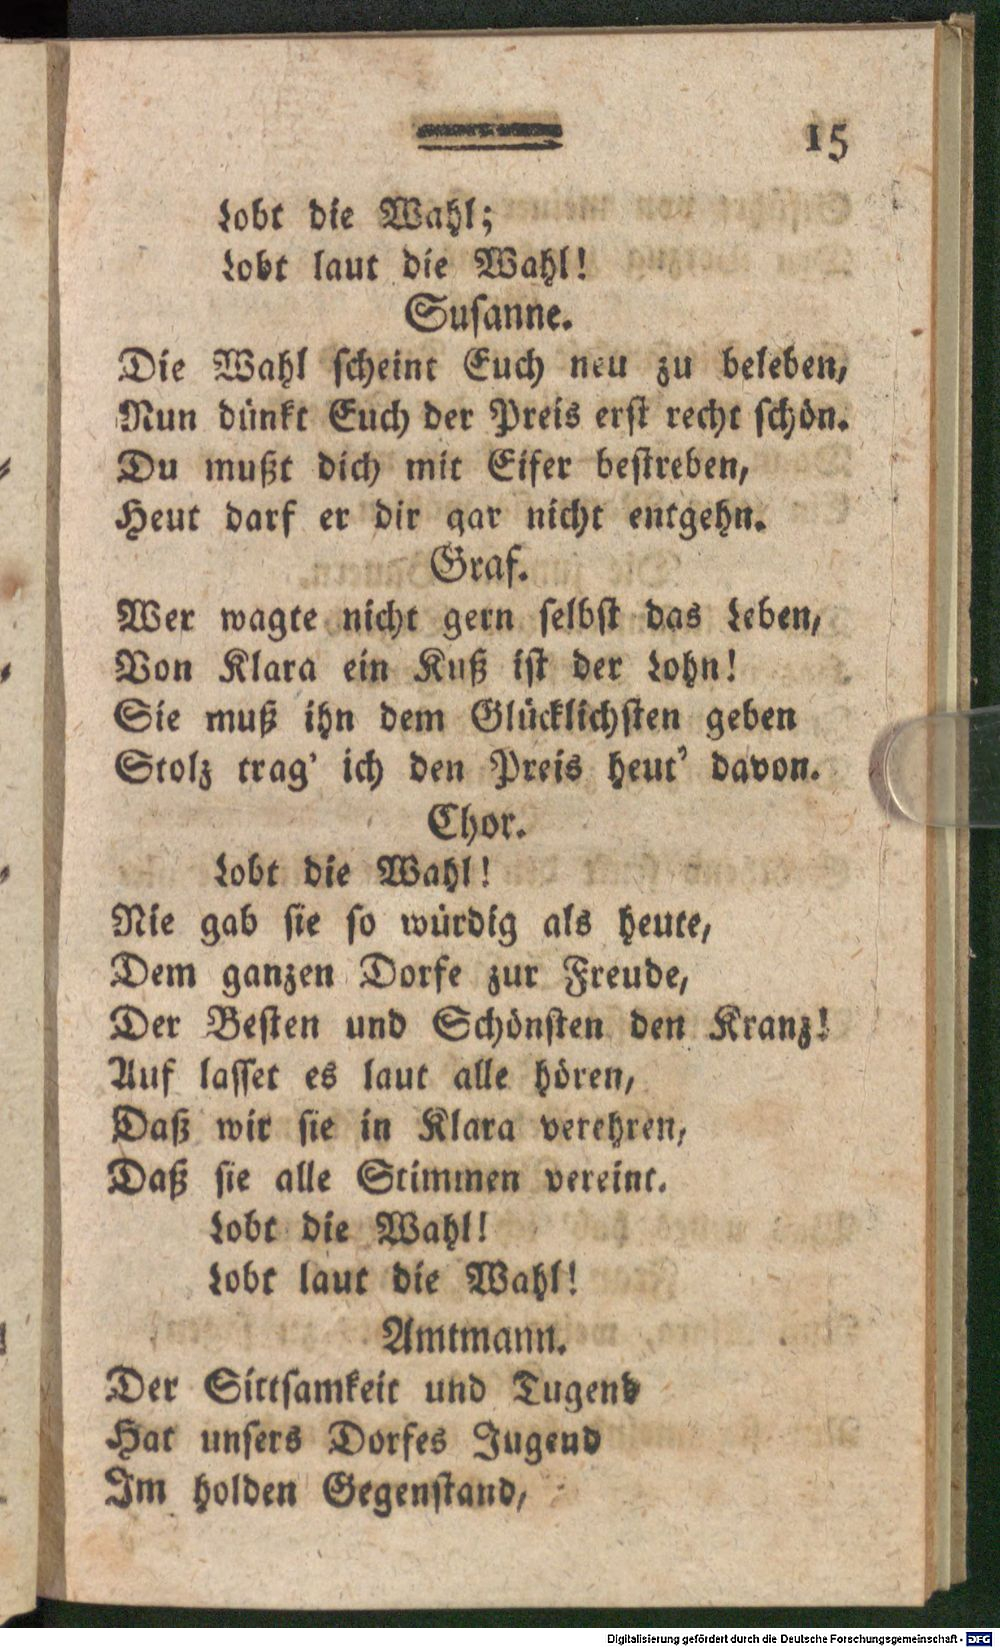 15
Lobt die Wahl;
Lobt laut die Wahl!
Susanne.
Die Wahl scheint Euch neu zu beleben,
Nun dünkt Euch der Preis erst recht schön.
Du mußt dich mit Eifer bestreben,
Heut darf er dir gar nicht entgehn.
Graf.
Wer wagte nicht gern selbst das Leben,
Von Klara ein Kuß ist der Lohn!
Sie muß ihn dem Glücklichsten geben
Stolz trag' ich den Preis heut' davon.
Chor.
Lobt die Wahl!
Nie gab sie so würdig als heute,
Dem ganzen Dorfe zur Freude,
Der Besten und Schönsten den Kranz!
Auf lasset es laut alle hören,
Daß wir sie in Klara verehren,
Daß sie alle Stimmen vereint.
Lobt die Wahl!
Lobt laut die Wahl!
Amtmann.
Der Sittsamkeit und Tugend
Hat unsers Dorfes Jugend
Im holden Gegenstand,
Digitalisierung gefördert durch die Deutsche Forschungsgemeinschaft - DFG